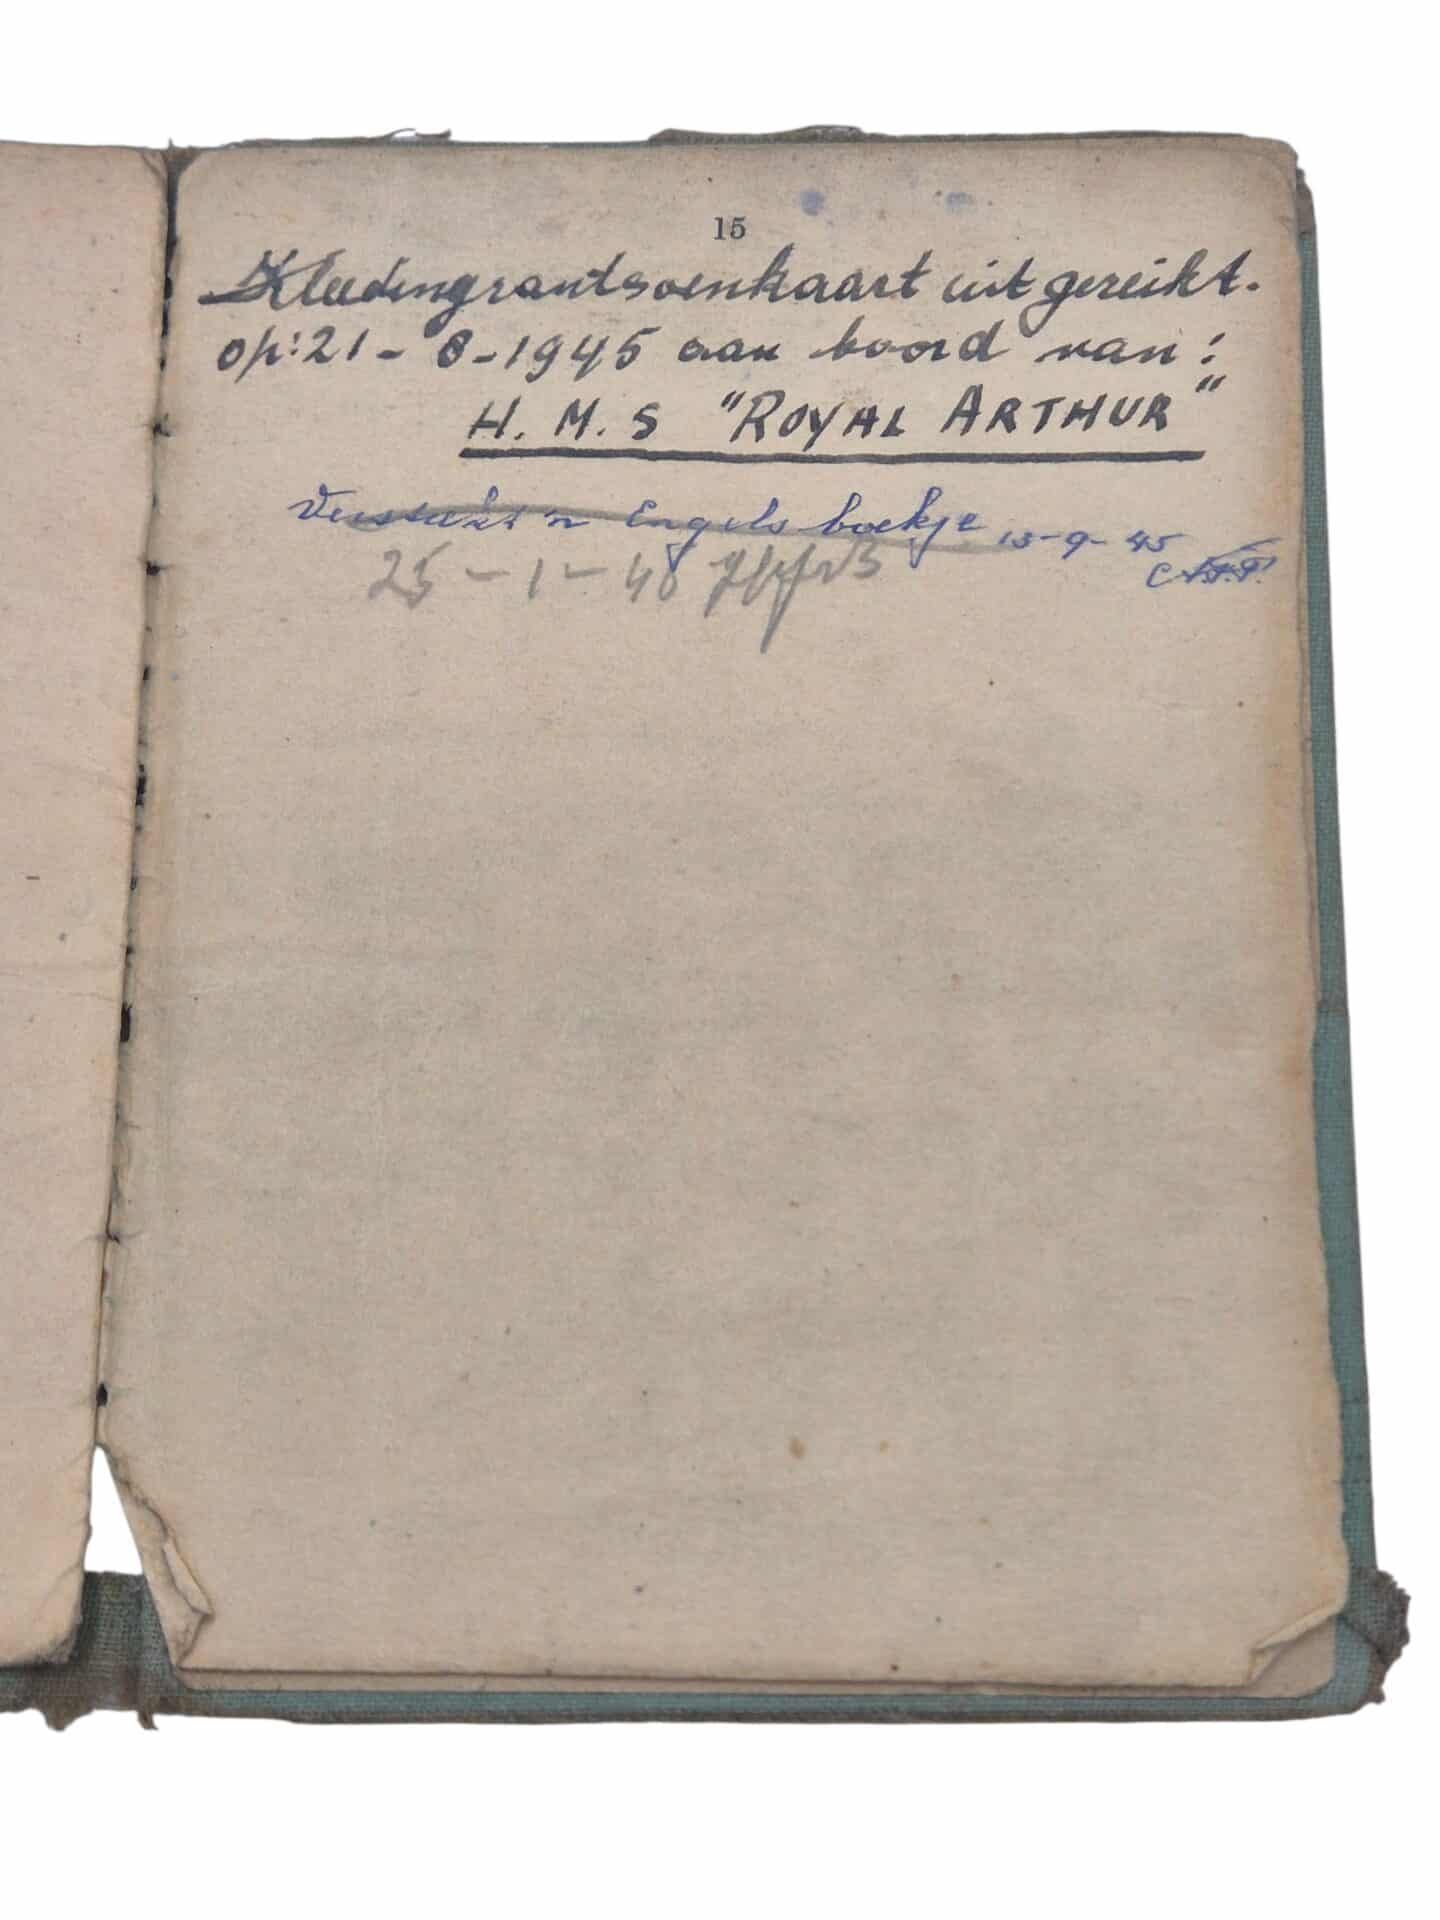 15
Kleedingrantsoenkaart uitgereikt.
op: 21 - 8 - 1945 aan boord van:
H. M. S "ROYAL ARTHUR"
Verstrekt 'n Engels boekje 15-9-45
25 - 1 - 46